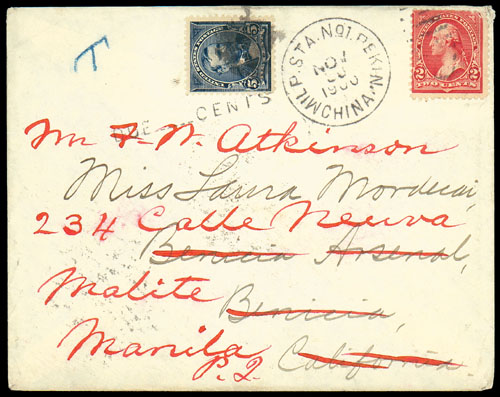 T
MIL. P. STA. NO1. PEKIN, CHINA.
NOV
1900
5
2 2
DUE CENTS
Mr F. W. Atkinson
Miss Laura Mordecai,
234 Calle Neuva
Benicia Arsenal,
Malite
Benicia,
Manila
P.I.
California.